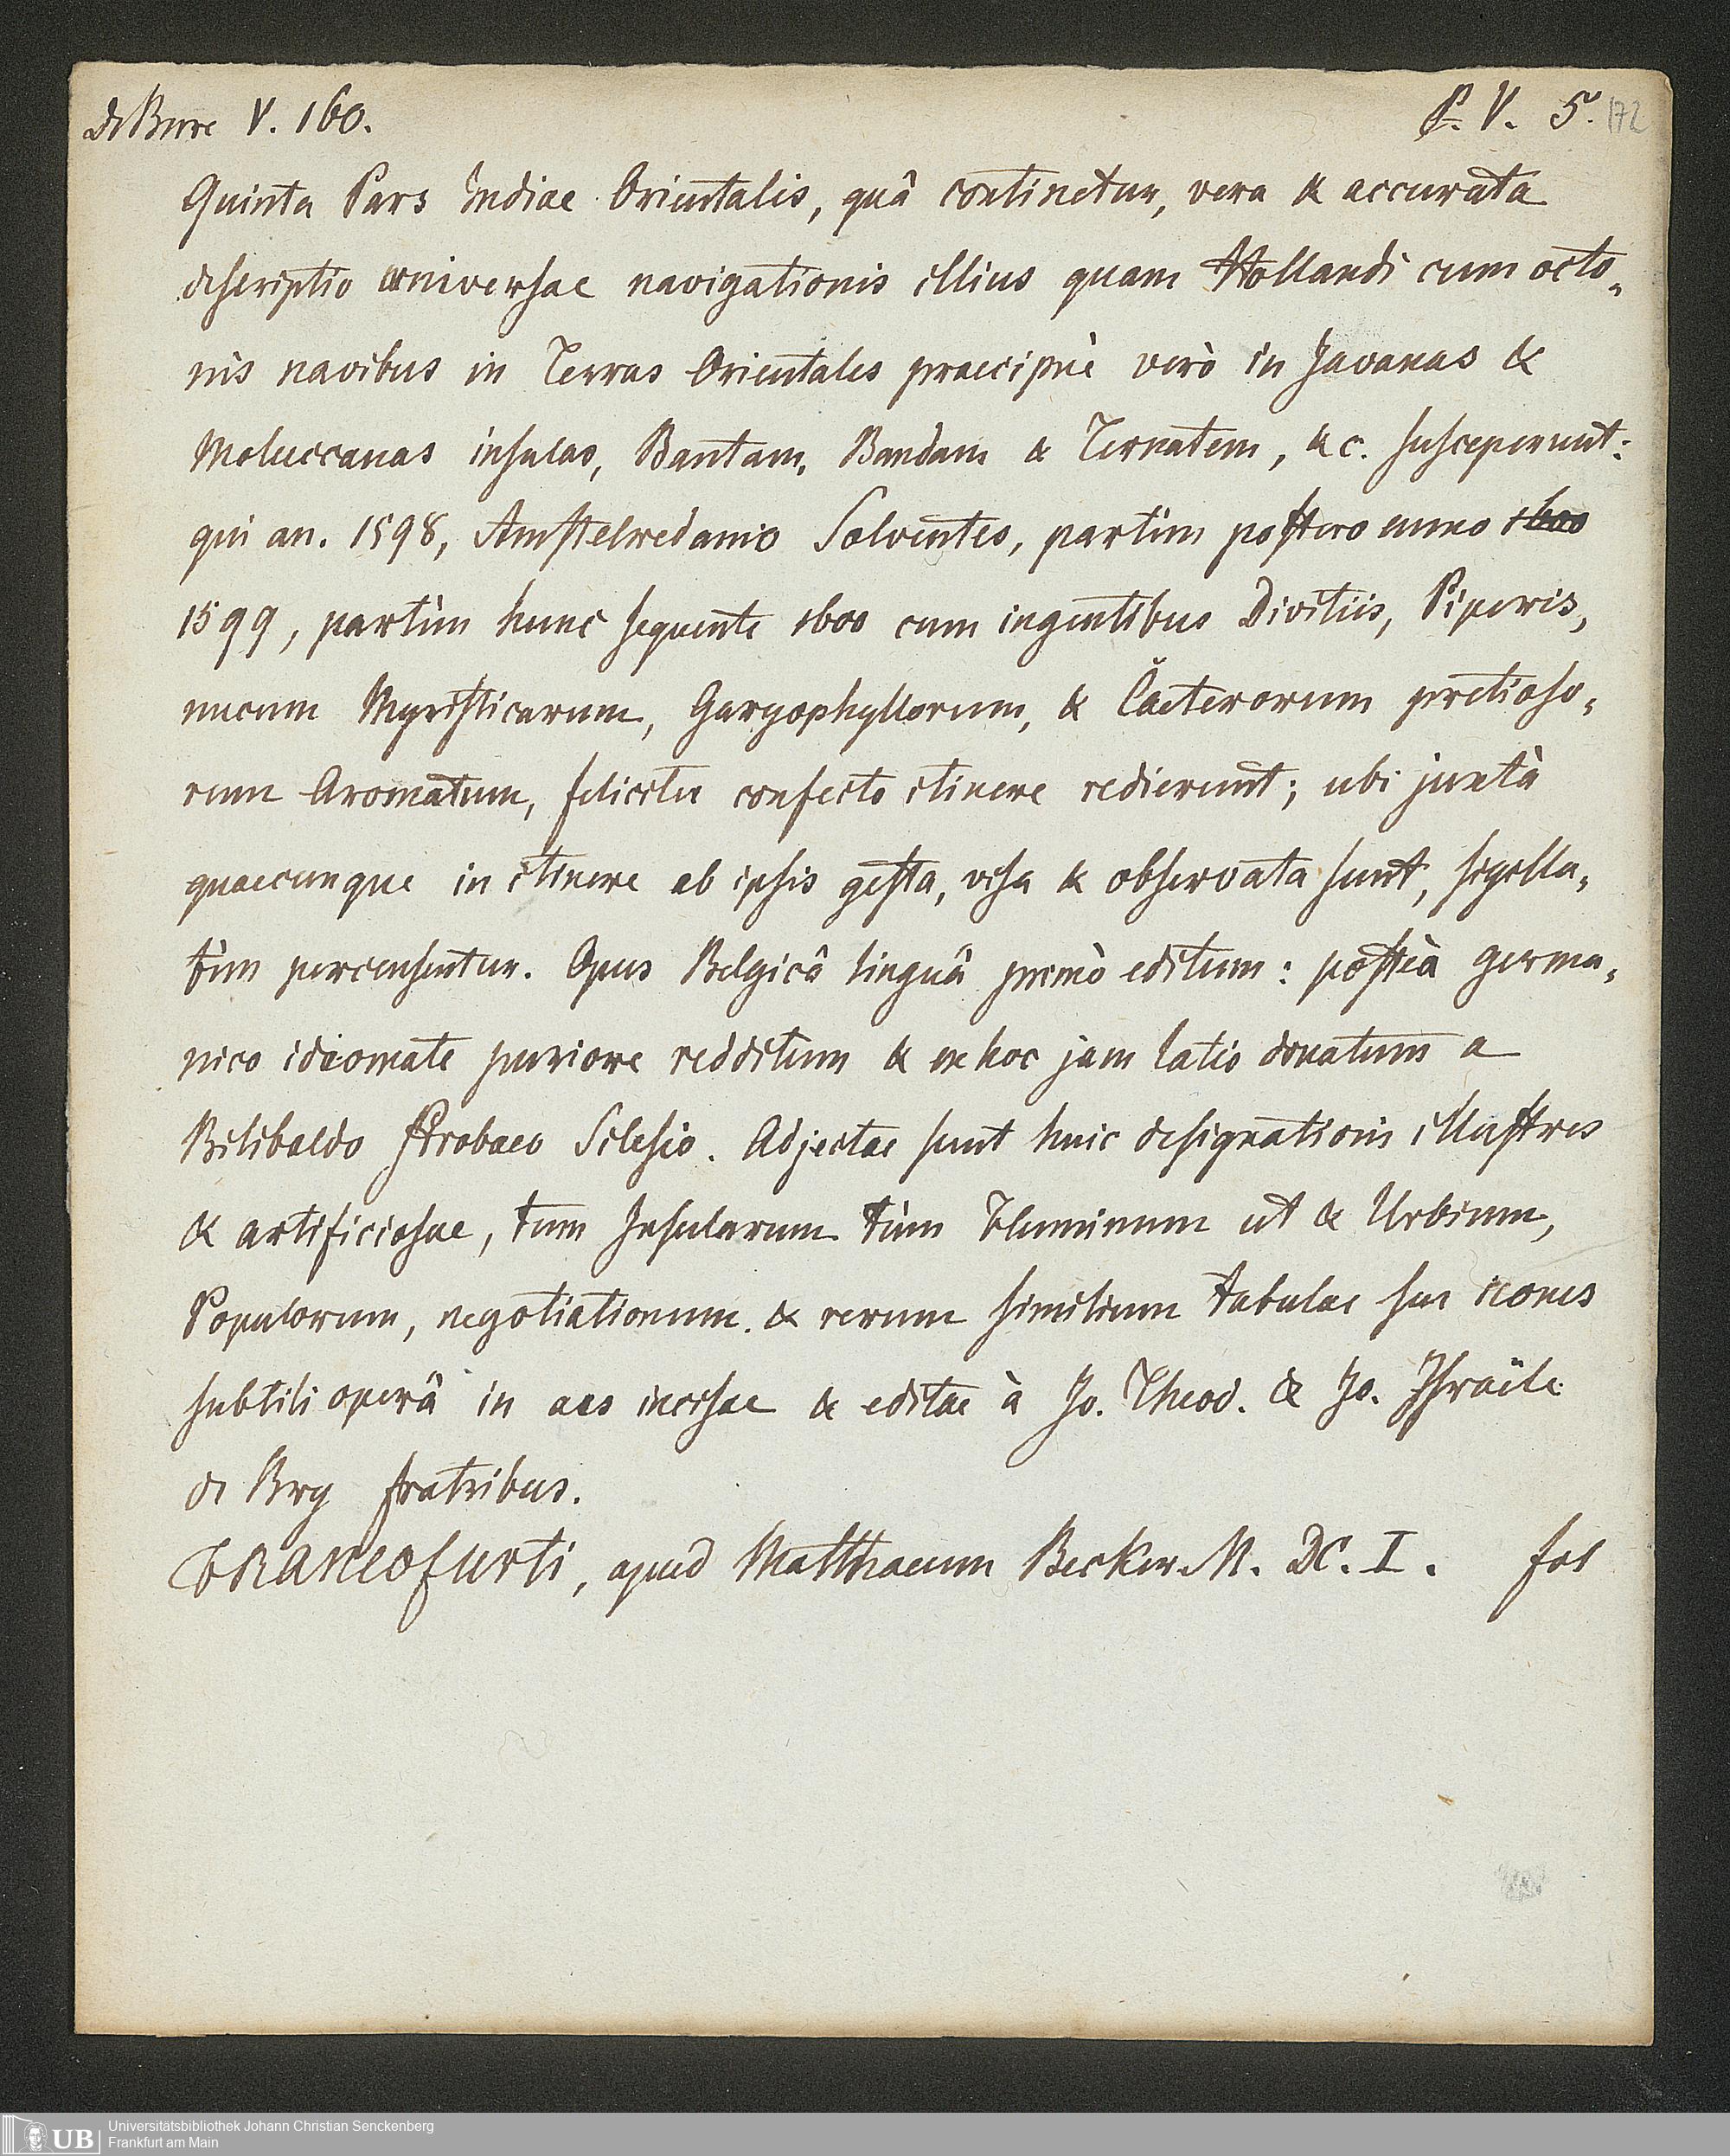 De Bure V. 160.
P. V. 5. 172
Quinta Pars Indiae Orientalis, quâ continetur, vera & accurata
descriptio universae navigationis illius quam Hollandi cum octo-
nis navibus in Terras Orientales praecipuè verò in Javanas &
Moluccanas insulas, Bantam, Bandam & Ternatem, &c. susceperunt:
qui an. 1598, Amstelredamio Solventes, partim postero anno 1600
1599, partim hunc sequente 1600 cum ingentibus Divitiis, Piperis,
nucum Myristicarum, Garyophyllorum, & Caeterorum pretioso-
rum Aromatum, feliciter confecto itinere redierunt; ubi juxtà
quaecunque in itinere ab ipsis gesta, visa & observata sunt, sigilla-
tim percensentur. Opus Belgicâ linguâ primò editum: posteà germa-
nico idiomate puriore redditum & ex hoc jam latio donatum a
Bilibaldo Strobaeo Silesio. Adjectae sunt huic designationis illustres
& artificiosae, tum Insularum tùm Fluminum ut & Urbium,
Populorum, negotiationum & rerum similium tabulae seu icones
subtili operâ in aes incisae & editae à Jo. Theod. & Jo. Israële
de Bry fratribus.
Francofurti, apud Matthaeum Becker M. DC. I. fol
Universitätsbibliothek Johann Christian Senckenberg
UB Frankfurt am Main